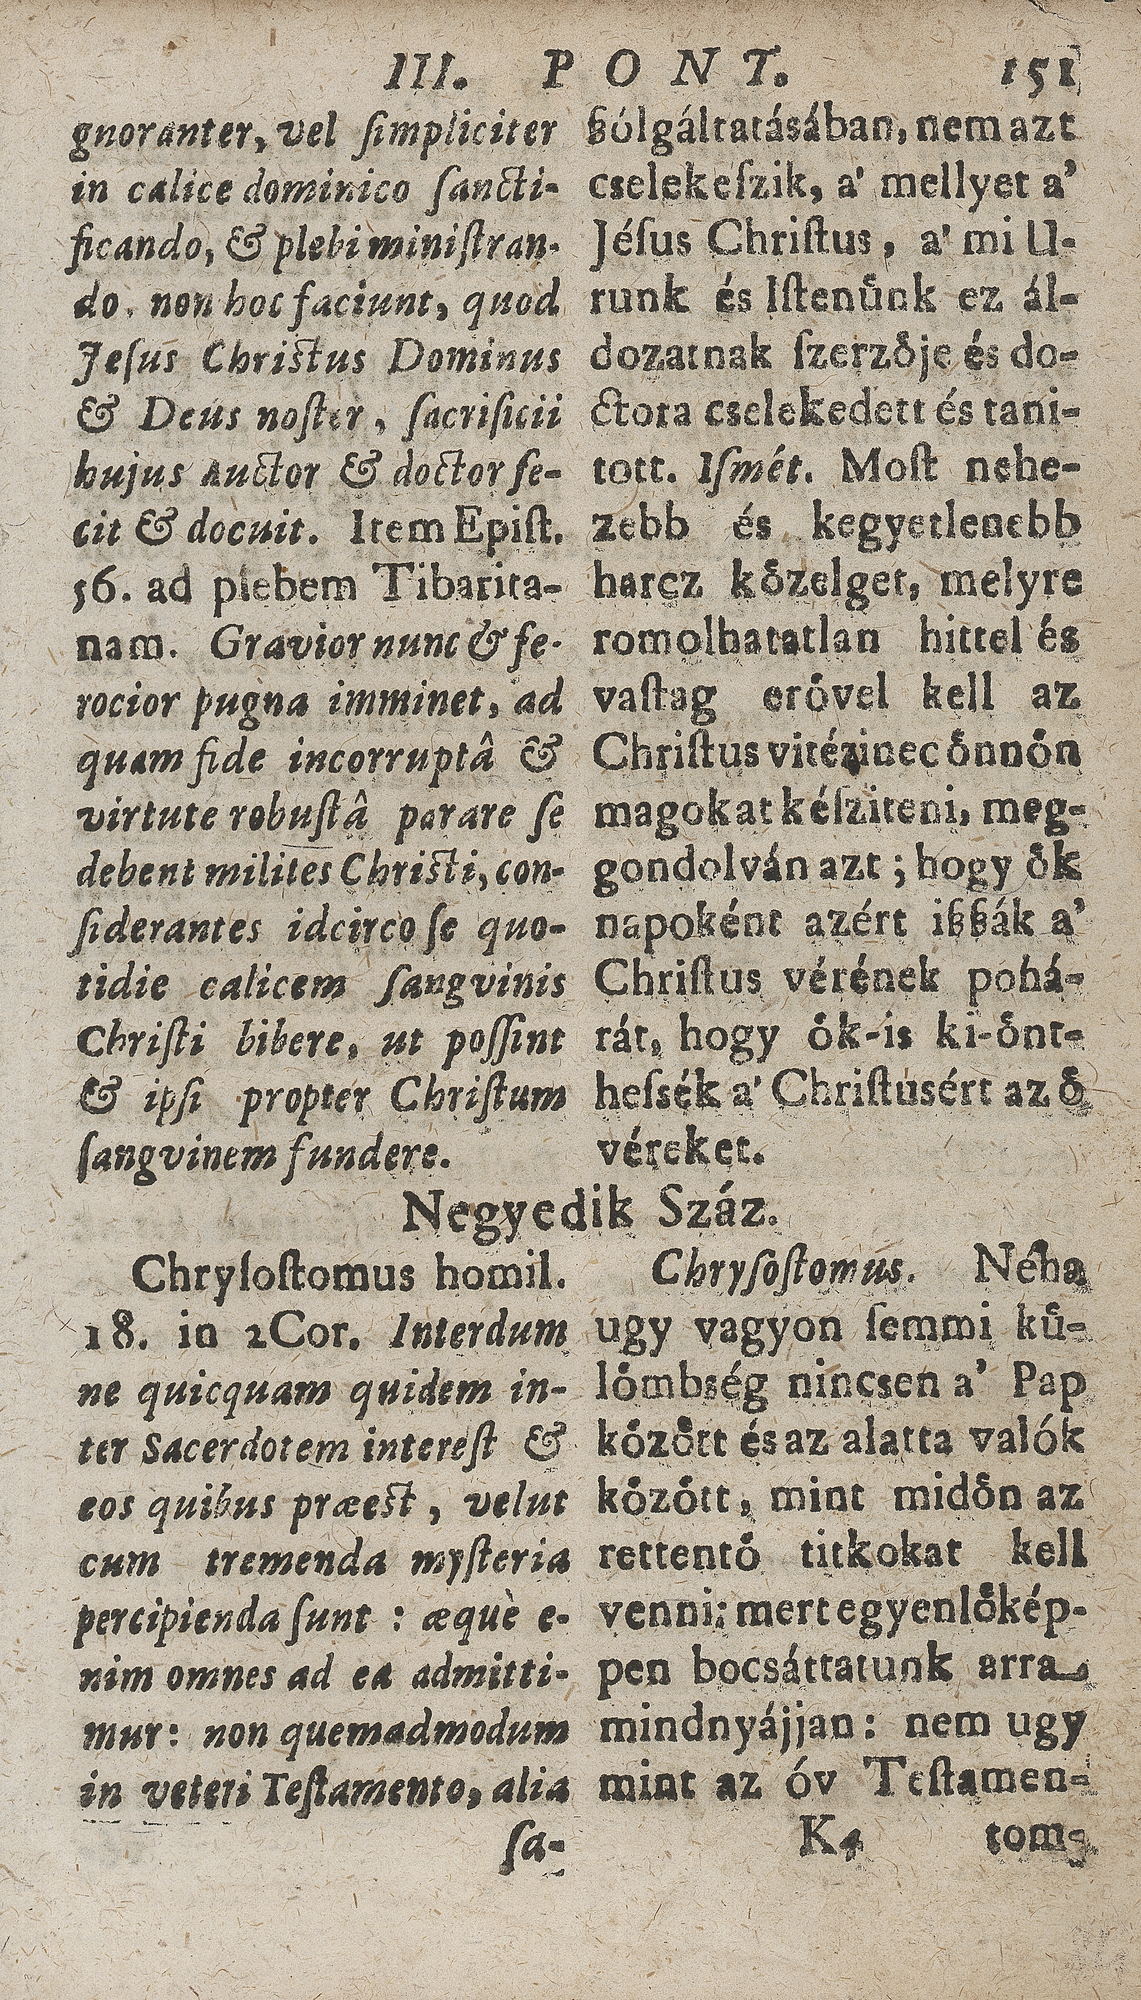 III. PONT. 151
gnoranter, vel ſimpliciter
in calice dominico ſancti-
ficando, & plebi miniſtran-
do, non hoc faciunt, quod
Jeſus Chriſtus Dominus
& Deus noſter, ſacrificii
hujus auctor & doctor fe-
cit & docuit. Item Epiſt.
56. ad plebem Tibarita-
nam. Gravior nunc & fe-
rocior pugna imminet, ad
quam fide incorruptâ &
virtute robuſtâ parare ſe
debent milites Chriſti, con-
ſiderantes idcirco ſe quo-
tidie calicem ſangvinis
Chriſti bibere, ut poſſint
& ipſi propter Chriſtum
ſangvinem fundere.
ßólgáltatásában, nem azt
cselekeſzik, a' mellyet a'
Jéſus Chriſtus, a' mi U-
runk és Iſtenünk ez ál-
dozatnak ſzerzője és do-
ctora cselekedett és tani-
tott. Iſmét. Moſt nehe-
zebb és kegyetlenebb
harcz kőzelget, melyre
romolhatatlan hittel és
vaſtag erővel kell az
Chriſtus vitézinec őnnőn
magokat kéſziteni, meg-
gondolván azt; hogy ők
napoként azért ißßák a'
Chriſtus vérének pohá-
rát, hogy ők-is ki-őnt-
heſsék a' Chriſtusért az ő
véreket.
Negyedik Száz.
Chryſoſtomus homil.
18. in 2Cor. Interdum
ne quicquam quidem in-
ter Sacerdotem intereſt &
eos quibus præeſt, velut
cum tremenda myſteria
percipienda ſunt : æquè e-
nim omnes ad ea admitti-
mur: non quemadmodum
in veteri Teſtamento, alia
ſa-
Chryſoſtomus. Néha
ugy vagyon ſemmi kü-
lőmbség nincsen a' Pap
kőzőtt és az alatta valók
kőzőtt, mint midőn az
rettentő titkokat kell
venni: mert egyenlőkép-
pen bocsáttatunk arra
mindnyájjan: nem ugy
mint az óv Teſtamen-
K4 tom-